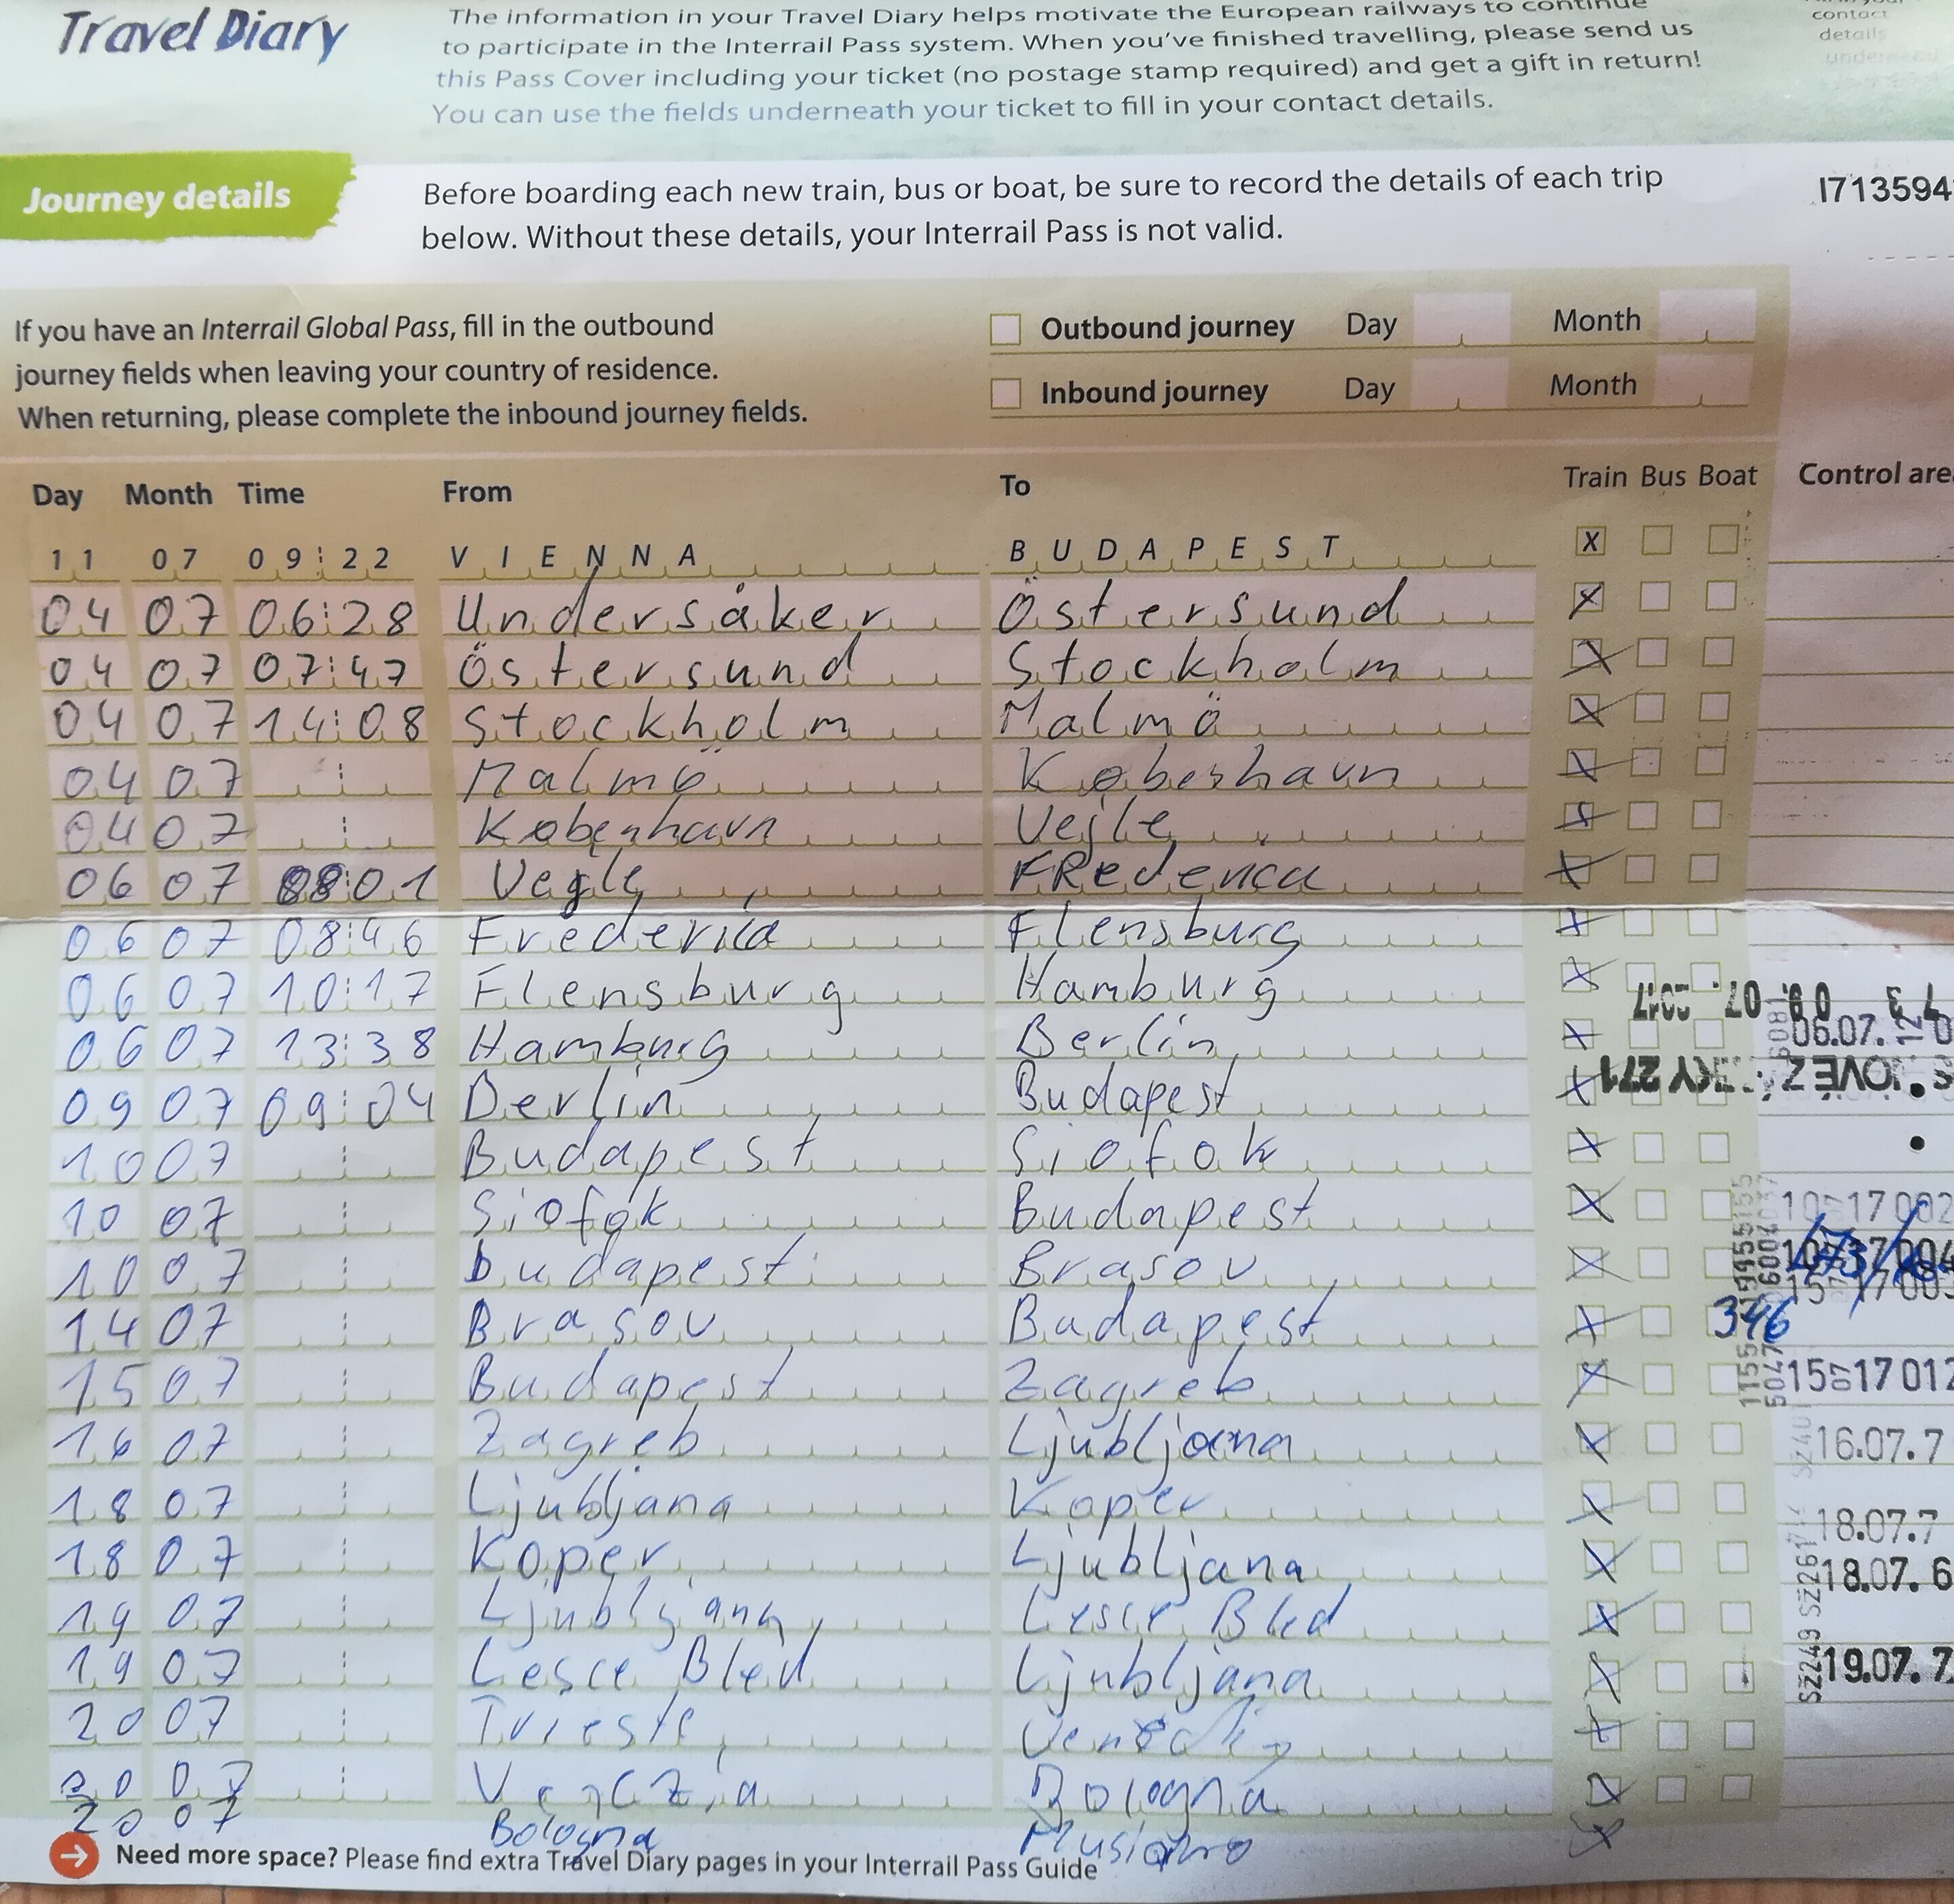 Travel Diary
The information in your Travel Diary helps motivate the European railways to continue
to participate in the Interrail Pass system. When you've finished travelling, please send us
this Pass Cover including your ticket (no postage stamp required) and get a gift in return!
You can use the fields underneath your ticket to fill in your contact details.
contact
details
Journey details
Before boarding each new train, bus or boat, be sure to record the details of each trip
below. Without these details, your Interrail Pass is not valid.
I713594
If you have an Interrail Global Pass, fill in the outbound
journey fields when leaving your country of residence.
When returning, please complete the inbound journey fields.
Outbound journey Day Month
Inbound journey Day Month
Day Month Time From To Train Bus Boat Control are
11 07 09:22 VIENNA BUDAPEST X
04 07 06:28 Undersåker Östersund X
04 07 07:47 Östersund Stockholm X
04 07 14:08 Stockholm Malmö X
04 07 Malmö Købeshavn X
04 07 København Vejle X
06 07 08:01 Vejle FRederica X
06 07 08:46 Fredericia Flensburg X
06 07 10:17 Flensburg Hamburg X
06 07 13:38 Hamburg Berlin X 06.07.
09 07 09:04 Berlin Budapest X
10 07 Budapest Siofok X
10 07 Siofok Budapest X
10 07 Budapest Brasov X
14 07 Brasov Budapest X 346
15 07 Budapest Zagreb X 15 17 012
16 07 Zagreb Ljubljana X 16.07.7
18 07 Ljubljana Koper X 18.07.7
18 07 Koper Ljubljana X 18.07. 6
19 07 Ljubljana Lesce Bled X
19 07 Lesce Bled Ljubljana X 19.07. 7
20 07 Trieste X
20 07 Venezia Bologna X
20 07 Bologna X
Need more space? Please find extra Travel Diary pages in your Interrail Pass Guide